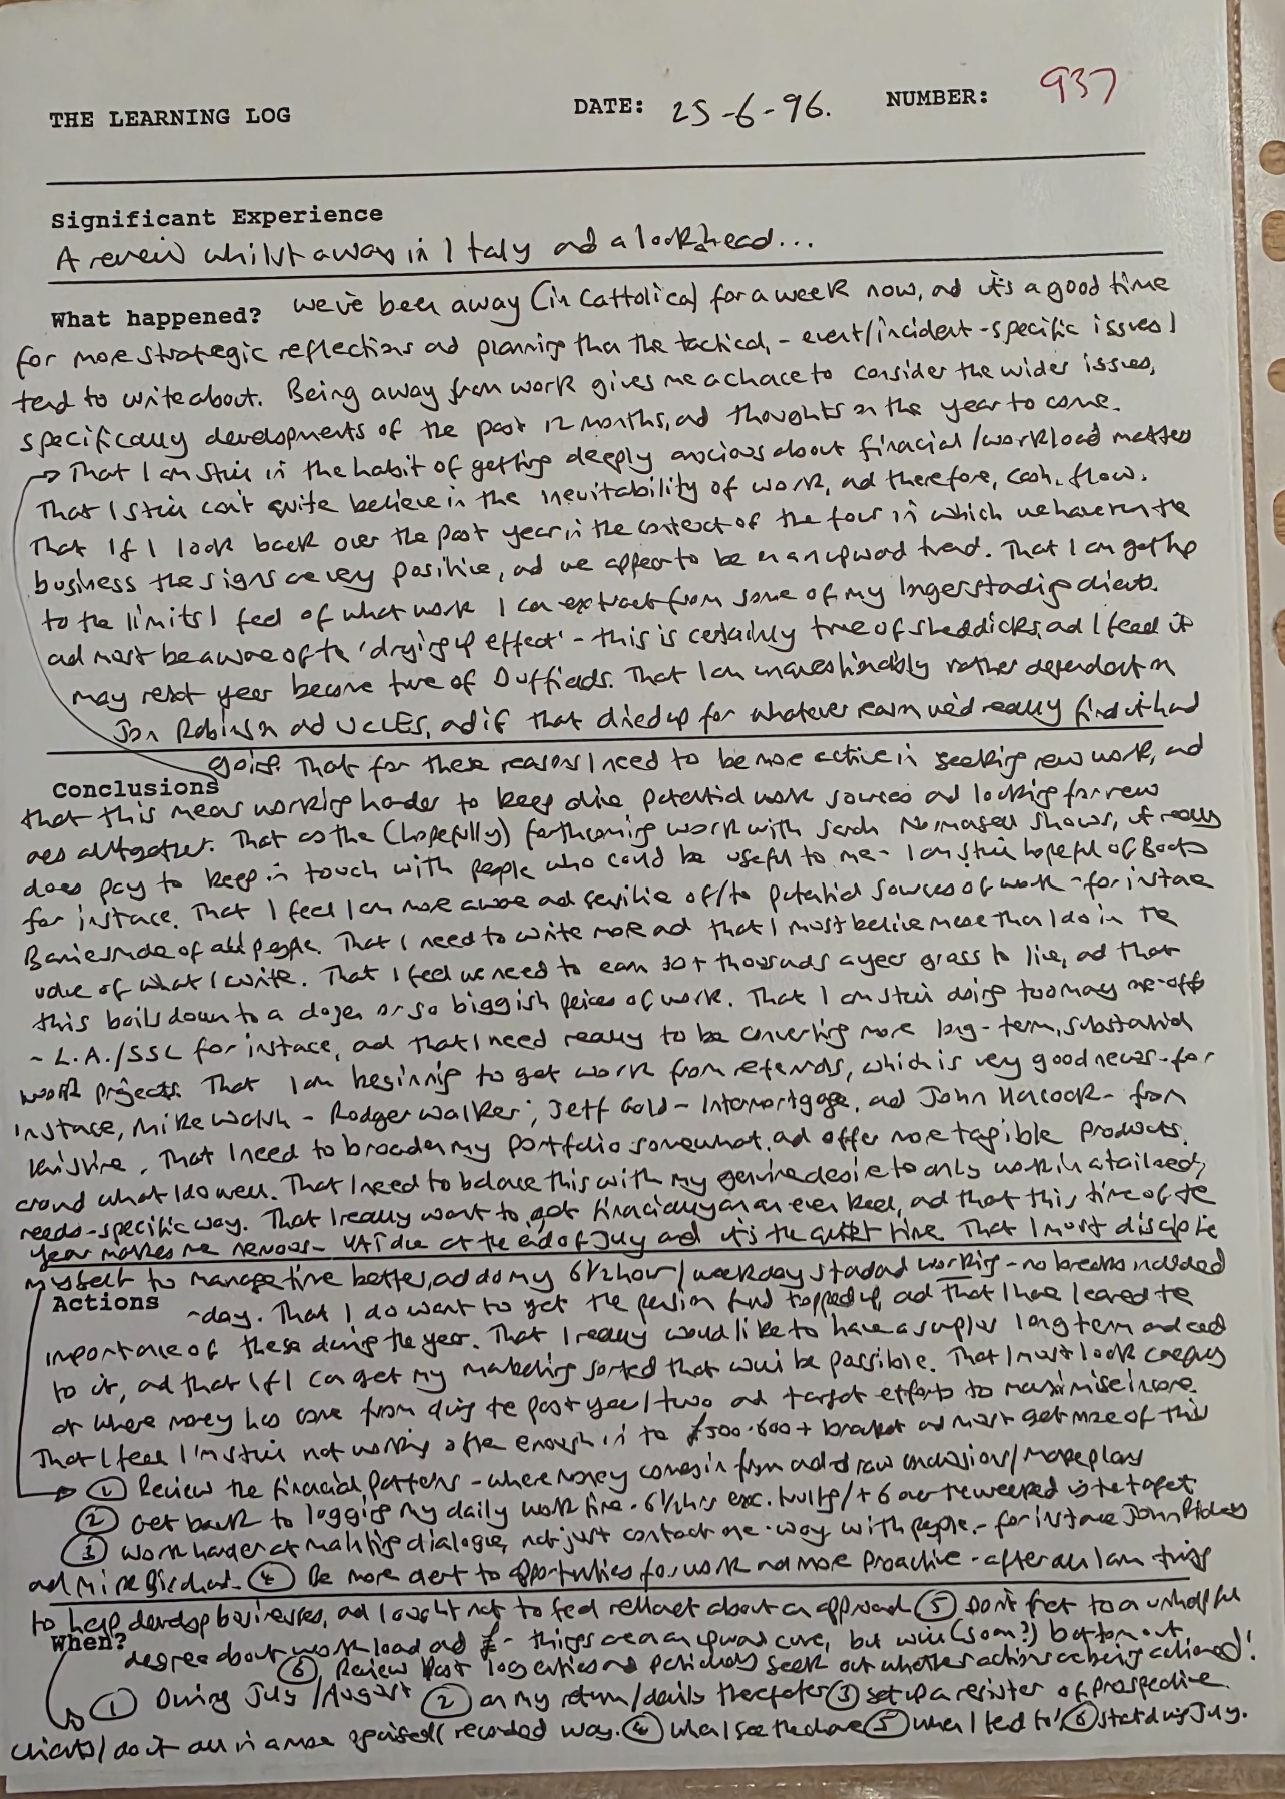 THE LEARNING LOG DATE: 25-6-96. NUMBER: 937
Significant Experience
A review whilst away in Italy and a look ahead...
What happened? We've been away (in Cattolica) for a week now, and it's a good time
for more strategic reflections and planning than the tactical, - event/incident-specific issues I
tend to write about. Being away from work gives me a chance to consider the wider issues,
specifically developments of the past 12 months, and thoughts on the year to come.
→ That I am still in the habit of getting deeply anxious about financial/workload matters
That I still can't quite believe in the inevitability of work, and therefore, cash-flow.
That if I look back over the past year in the context of the four in which we have run the
business the signs are very positive, and we appear to be on an upward trend. That I am getting
to the limits I feel of what work I can extract from some of my longer standing clients.
and must be aware of the 'drying up effect' - this is certainly true of Sheddicks, and I feel it
may next year become true of Duffields. That I am unquestionably rather dependent on
Jon Robinson and UCLES, and if that dried up for whatever reason we'd really find it hard
going. That for these reasons I need to be more active in seeking new work, and
Conclusions
that this means working harder to keep alive potential work sources and looking for new
ones altogether. That as the (hopefully) forthcoming work with Sarah shows, it really
does pay to keep in touch with people who could be useful to me - I am still hopeful of Boots
for instance. That I feel I am more aware and sensitive of/to potential sources of work - for instance
of all people. That I need to write more and that I must believe more than I do in the
value of what I write. That I feel we need to earn 30+ thousands a year gross to live, and that
this boils down to a dozen or so biggish pieces of work. That I am still doing too many one-offs
- L.A./SSC for instance, and that I need really to be converting more long-term, substantial
work projects. That I am beginning to get work from referrals, which is very good news - for
instance, Mike Walsh - Rodger Walker; Jeff Gold - Intermortgage, and John Hancock - from
. That I need to broaden my portfolio somewhat, and offer more tangible products.
around what I do well. That I need to balance this with my genuine desire to only work in a tailored,
needs-specific way. That I really want to get financially on an even keel, and that this time of the
year makes me nervous - VAT due at the end of July and it's the quiet time. That I must discipline
myself to manage time better, and do my 6½ hour/weekday standard working - no breaks included
Actions - day. That I do want to get the pension fund topped up, and that I have learned the
importance of these during the year. That I really would like to have a surplus long term and
to it, and that if I can get my marketing sorted that will be possible. That I must look carefully
at where money has come from during the past year/two and target efforts to maximise income.
That I feel I'm still not working often enough in the £500-600+ bracket and must get more of this
→ ① Review the financial patterns - where money comes in from and draw conclusions/make plans
② Get back to logging my daily work time. 6½ hrs exc. / + 6 over the weekend is the target
③ Work harder at making dialogue, not just contact one-way with people - for instance John
and . ④ Be more alert to opportunities for work and more proactive - after all I am trying
to help develop businesses, and I ought not to feel reticent about an approach ⑤ Don't fret to an unhelpful
When? degree about workload and £ - things are on an upward curve, but will (soon?) bottom out.
⑥ Review past log entries and seek out whether actions are being actioned!
① During July/August ② on my return/daily thereafter ③ set up a register of prospective
clients/ do it all in a more organised/recorded way. ④ when I see the chance ⑤ when I tend to! ⑥ start during July.